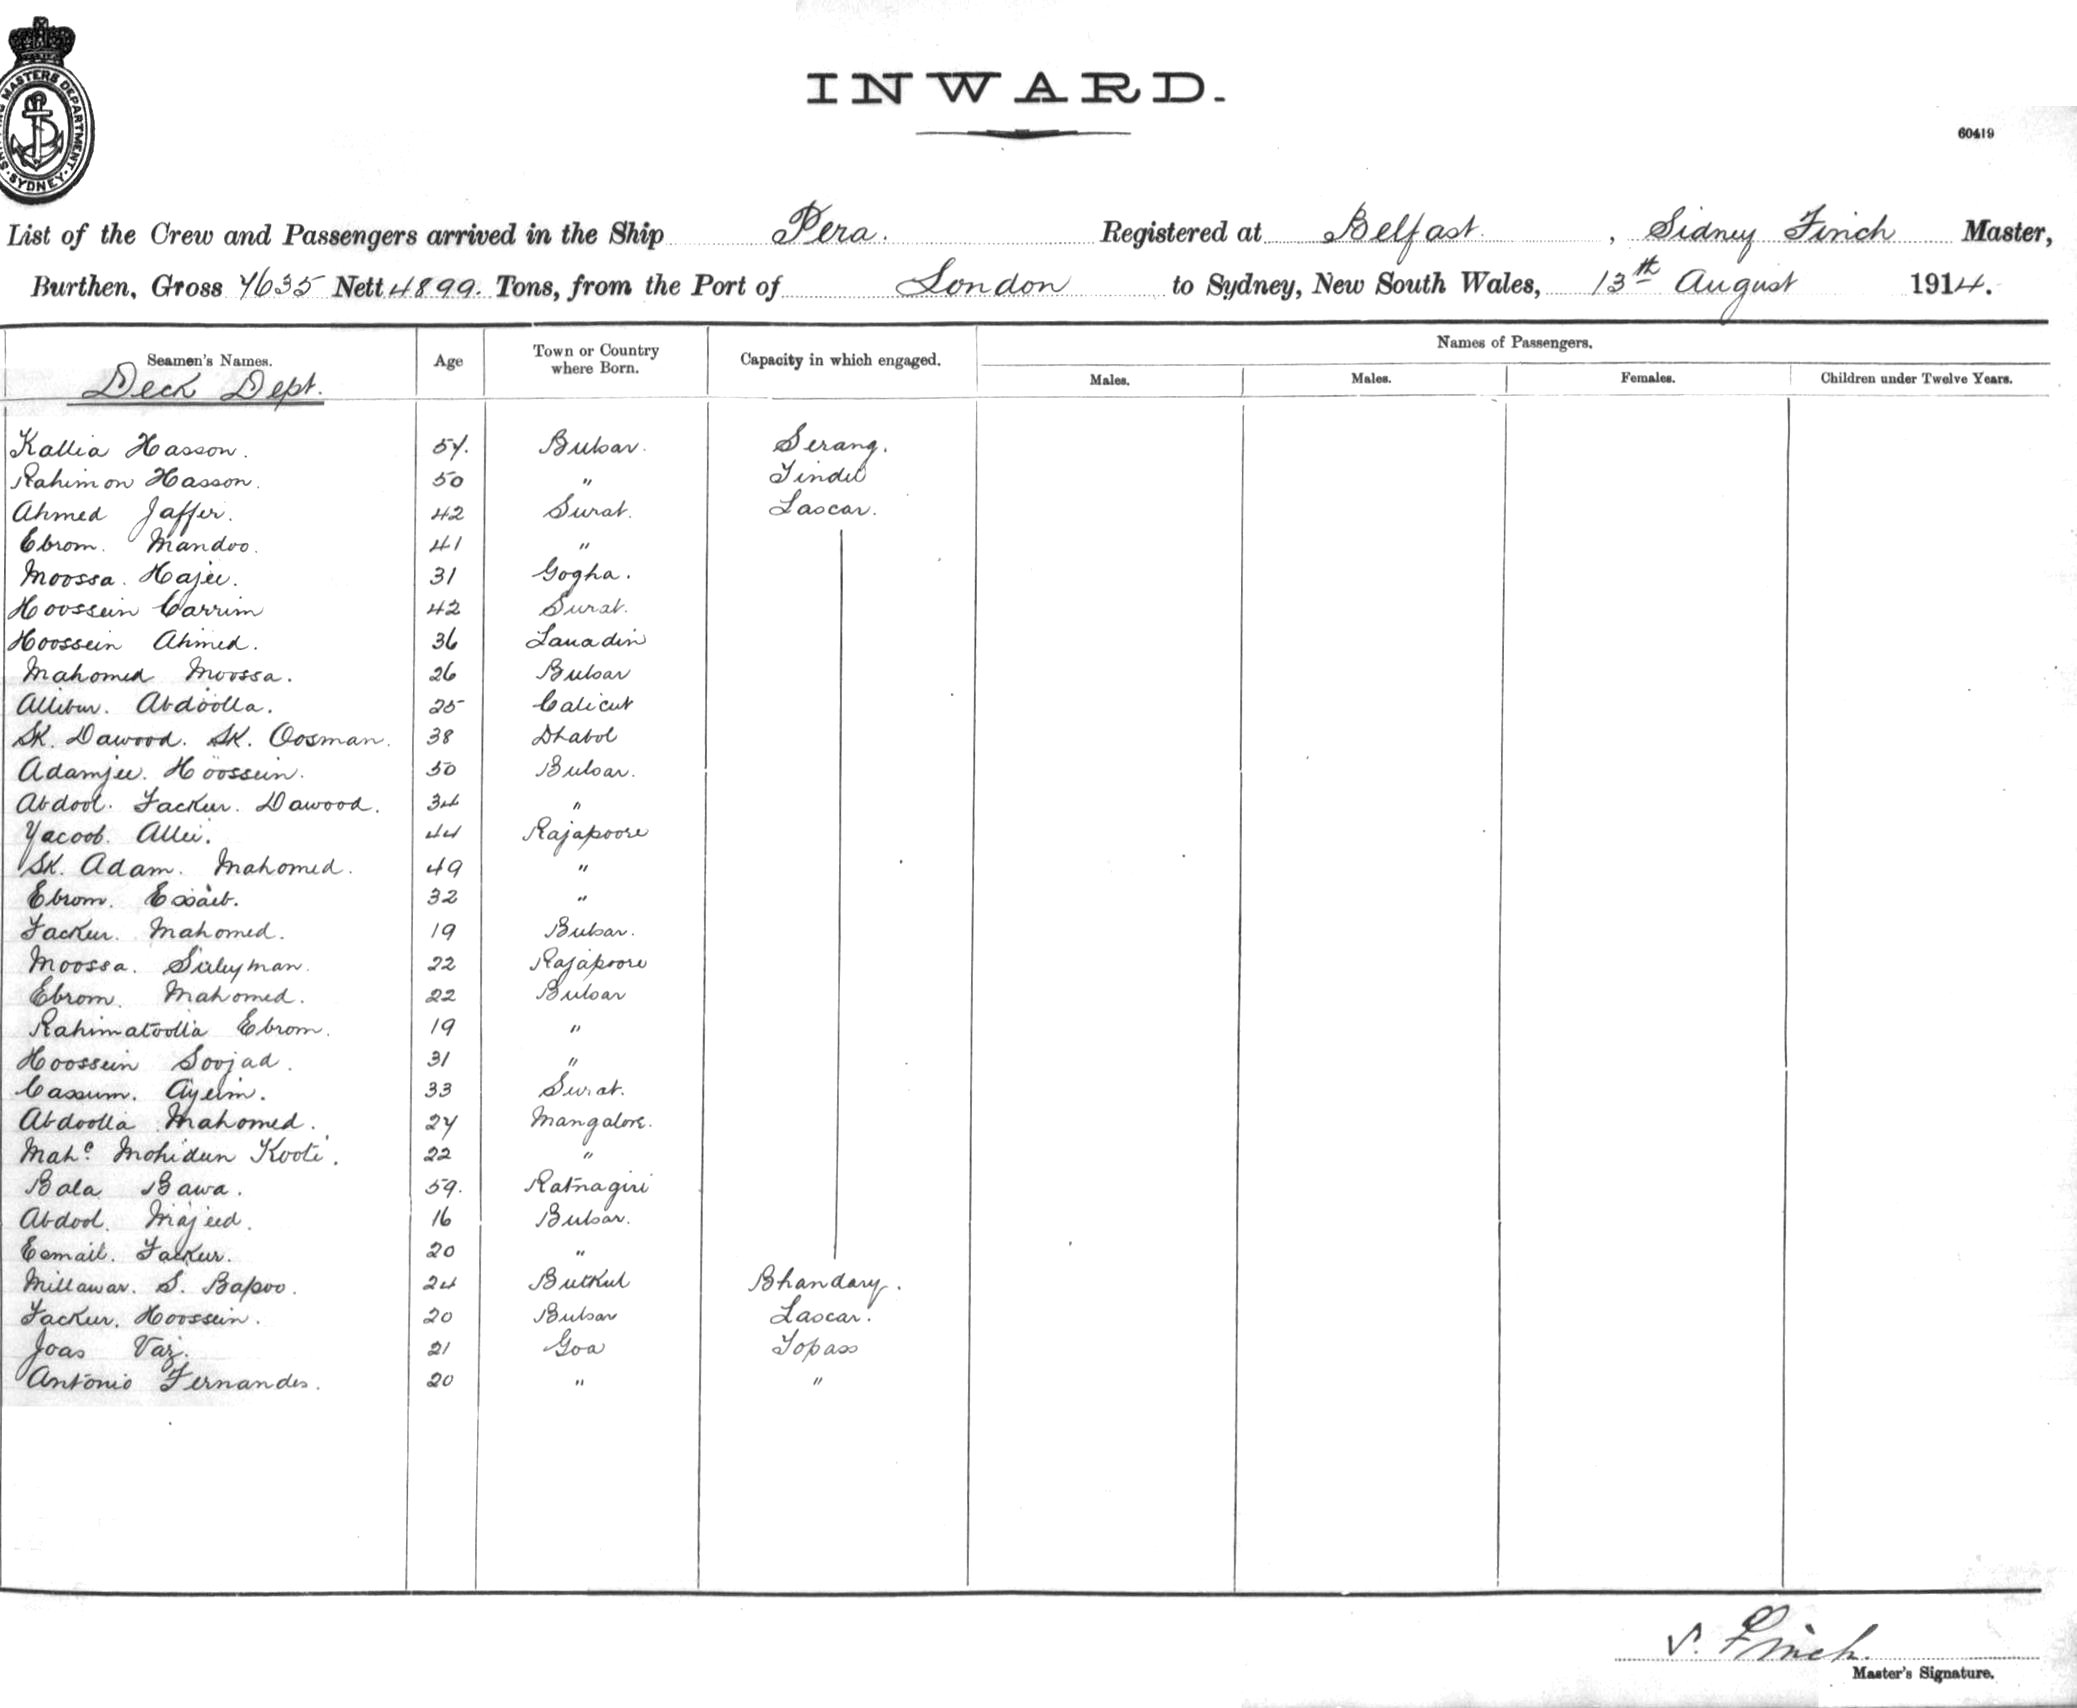 SHIPPING MASTERS DEPARTMENT · SYDNEY ·
INWARD.
60419
List of the Crew and Passengers arrived in the Ship Pera. Registered at Belfast, Sidney Finch Master,
Burthen, Gross 7635 Nett 4899. Tons, from the Port of London to Sydney, New South Wales, 13th August 1914.
Seamen's Names. Age Town or Country where Born. Capacity in which engaged. Names of Passengers.
Males. Males. Females. Children under Twelve Years.
Deck Dept.
Kallia Hasson. 57. Bulsar. Serang.
Rahimon Hasson. 50 " Tindel
Ahmed Jaffer. 42 Surat. Lascar.
Ebrom. Mandoo. 41 "
Moossa. Hajee. 31 Gogha.
Hoossein Carrim 42 Surat.
Hoossein Ahmed. 36
Mahomed Moossa. 26 Bulsar
Abdoolla. 25 Calicut
SK. Dawood. SK. Oosman. 38 Dhabol
Adamjee. Hoossein. 50 Bulsar.
Abdool. Fackur. Dawood. 34 "
Yacoob. Allee. 44 Rajapoore
SK. Adam. Mahomed. 49 "
Ebrom. 32 "
Fackur. Mahomed. 19 Bulsar.
Moossa. Suleyman. 22 Rajapoore
Ebrom. Mahomed. 22 Bulsar
Rahimatoolla Ebrom. 19 "
Hoossein Soojad. 31 "
Cassum. 33 Surat.
Abdoolla Mahomed. 27 Mangalore.
Mahd. Mohideen Kooti. 22 "
Bala Bawa. 59. Ratnagiri
Abdool. Majeed. 16 Bulsar.
Esmail. Fackur. 20 "
Millawar. S. Bapoo. 24 Butkul Bhandary.
Fackur. Hoossein. 20 Bulsar Lascar.
Joas Vaz. 21 Goa Topass
Antonio Fernandes. 20 " "
S. Finch.
Master's Signature.